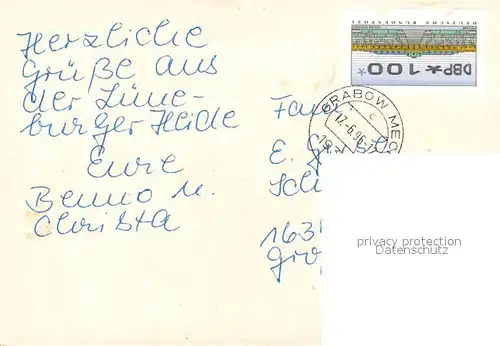 Herzliche
Grüße aus
der Lüne-
burger Heide
Eure
Benno u.
Christa
Fam.
E. G
Sch
163
Gro
DEUTSCHE BUNDESPOST
DBP * 100 *
GRABOW MECK
17.-6.96
privacy protection
Datenschutz